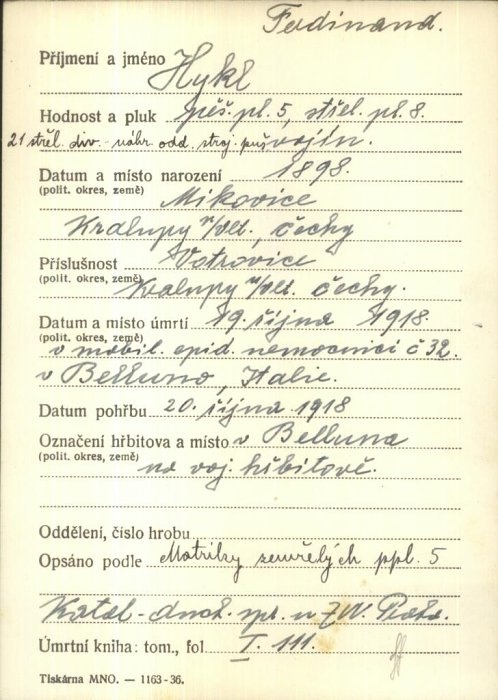 Ferdinand.
Příjmení a jméno Hykl
Hodnost a pluk pěš. pl. 5, střel. pl. 8.
21 střel. div. - náhr. odd. stroj. puš. vojín.
Datum a místo narození 1898.
(polit. okres, země) Mikovice
Kralupy n/Vlt., Čechy
Příslušnost Votrovice
(polit. okres, země) Kralupy n/Vlt. Čechy.
Datum a místo úmrtí 19. října 1918.
(polit. okres, země) v mobil. epid. nemocnici č 32.
v Belluno, Italie.
Datum pohřbu 20. října 1918
Označení hřbitova a místo v Belluna
(polit. okres, země) na voj. hřbitově.
Oddělení, číslo hrobu
Opsáno podle Matriky zemřelých ppl. 5
Katol. duch. spr. u ZV. Praha.
Úmrtní kniha: tom., fol I. 111.
Tiskárna MNO. — 1163-36.